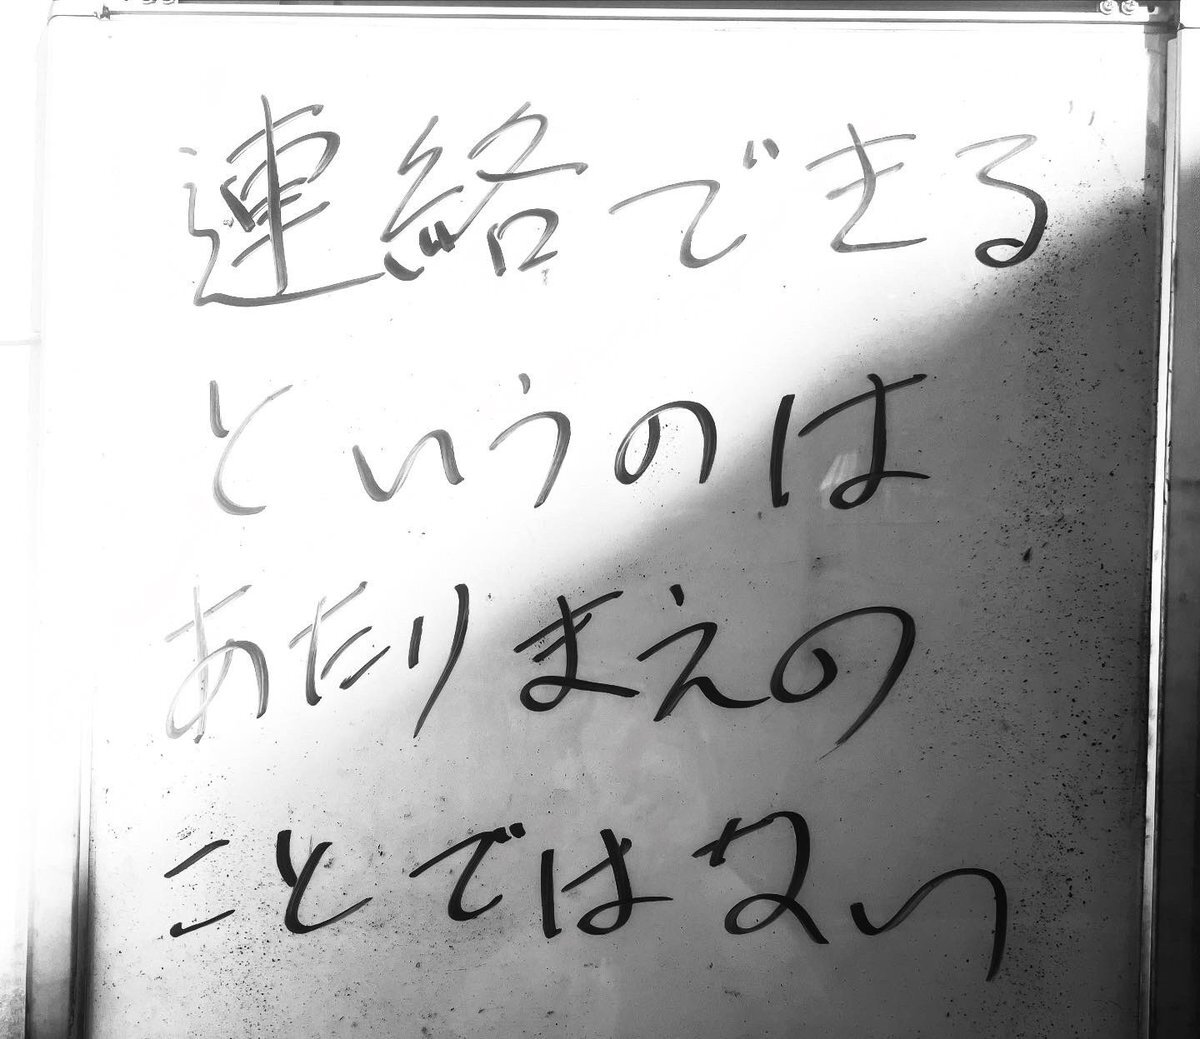 連絡できる
というのは
あたりまえの
ことではない